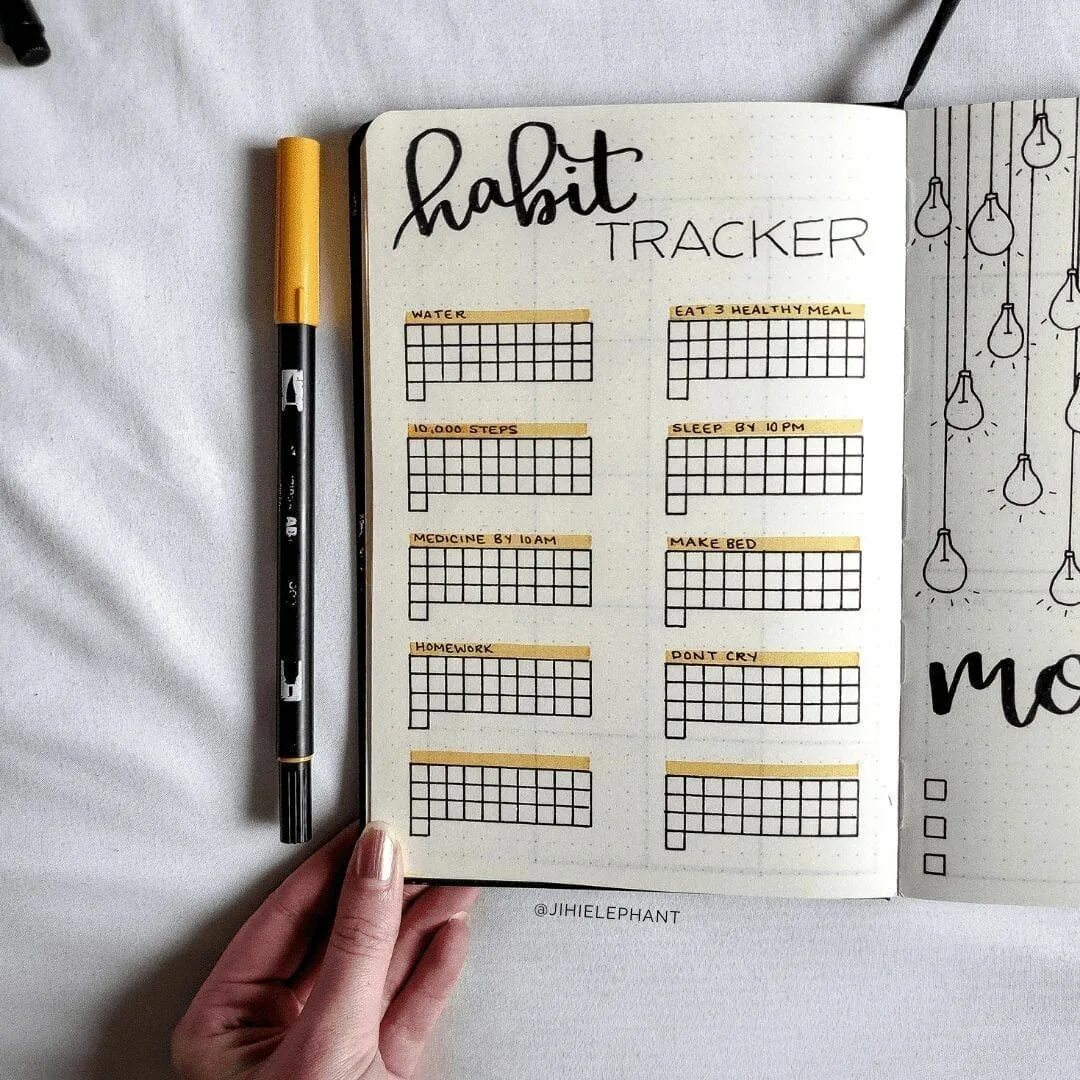 habit
TRACKER
WATER
EAT 3 HEALTHY MEAL
10,000 STEPS
SLEEP BY 10 PM
MEDICINE BY 10 AM
MAKE BED
HOMEWORK
DONT CRY
@JIHIELEPHANT